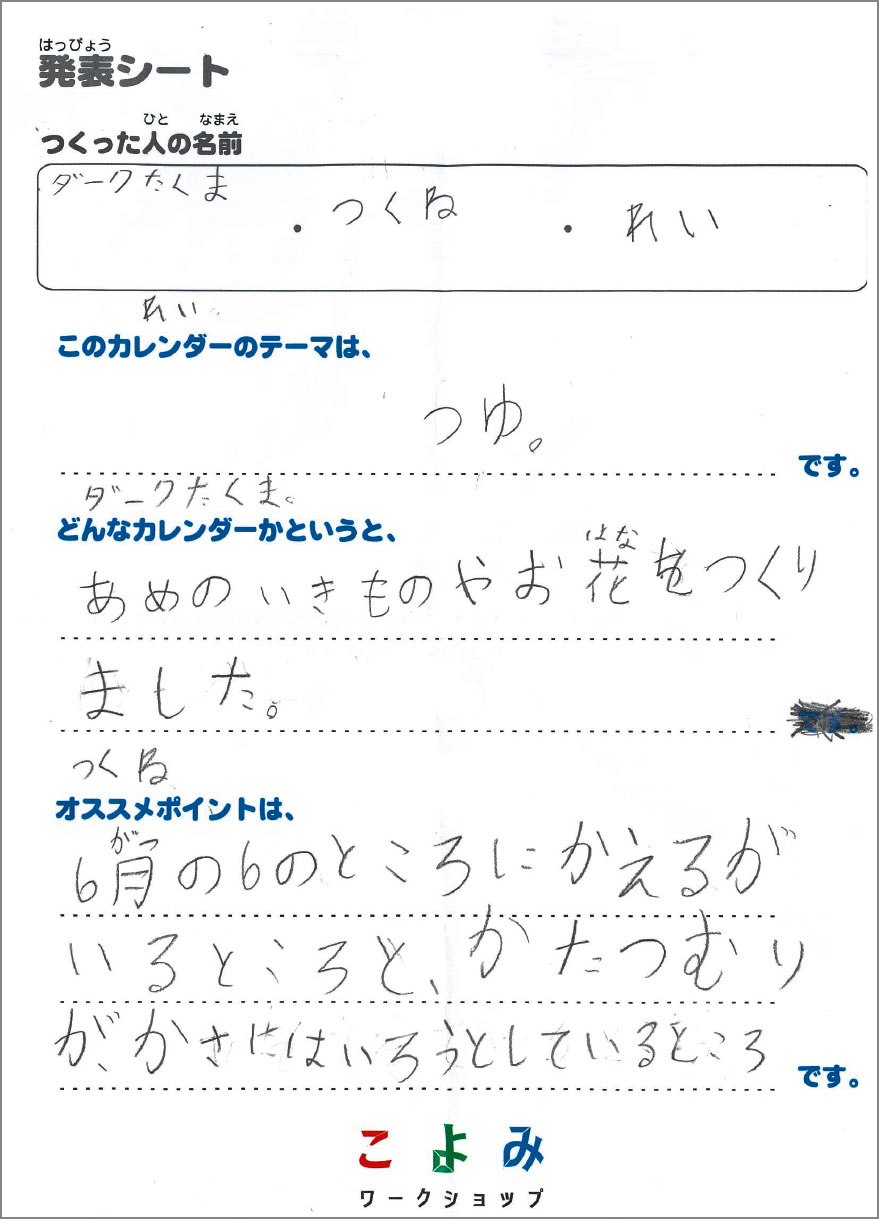 はっぴょう
発表シート
ひと なまえ
つくった人の名前
ダークたくま ・ つくる ・ れい
れい。
このカレンダーのテーマは、
つゆ。 です。
ダークたくま。
どんなカレンダーかというと、
はな
あめのいきものやお花をつくり
ました。
つくる
オススメポイントは、
がつ
6月の6のところにかえるが
いるところと、かたつむり
が、かさにはいろうとしているところ です。
こよみ
ワークショップ